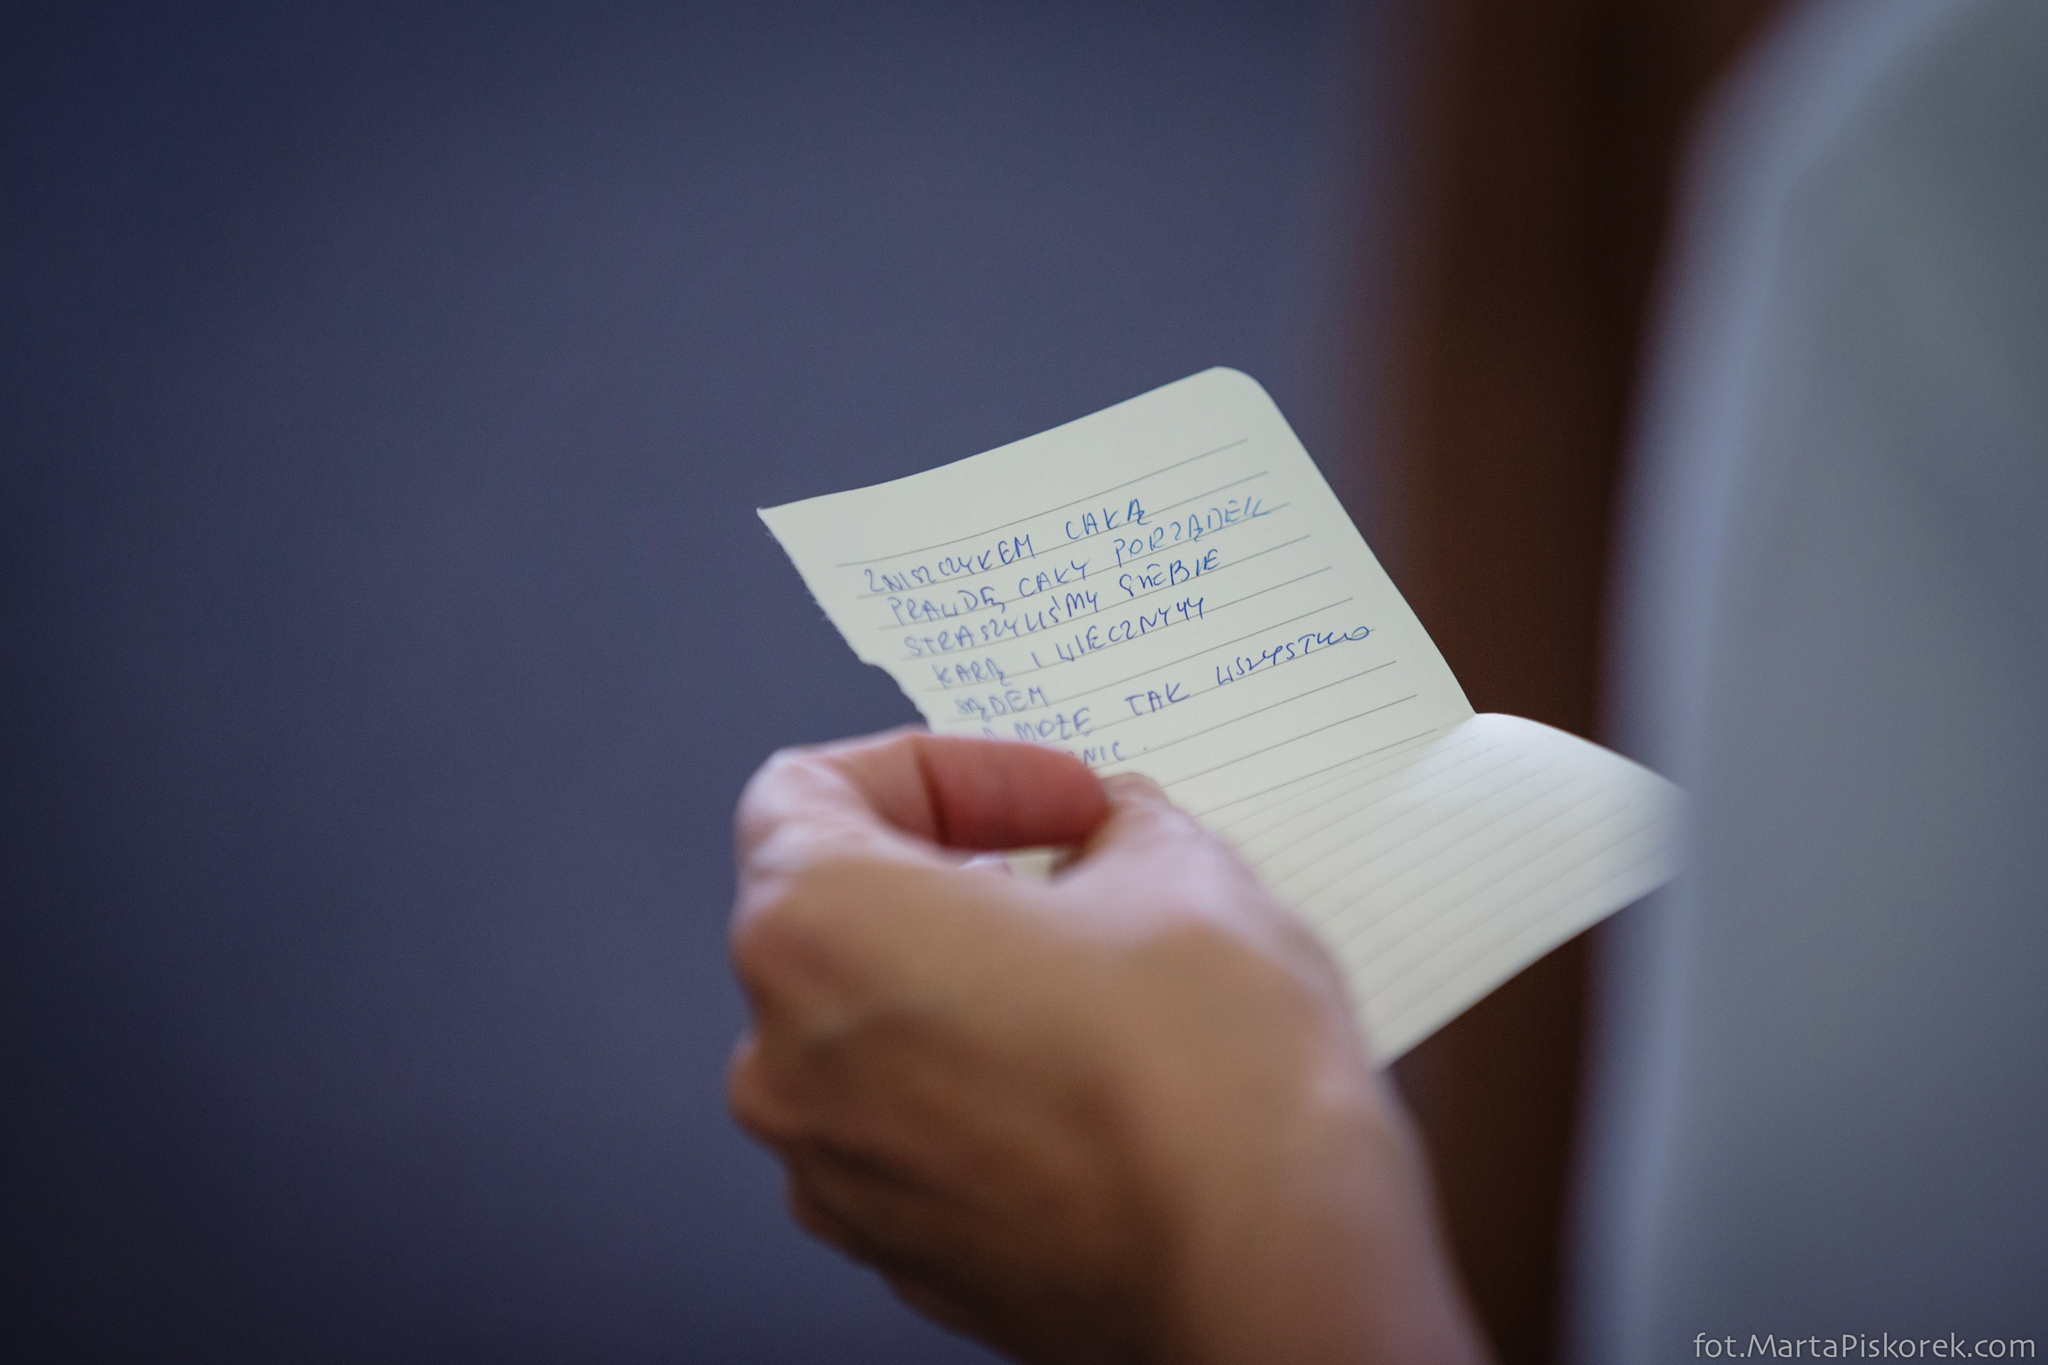 ZNISZCZYŁEM CAŁĄ
PRAWDĘ, CAŁY PORZĄDEK
STRASZYLIŚMY SIEBIE
KARĄ I WIECZNYYY
SĄDEM
A MOŻE TAK WSZYSTKO
NIC.
fot.MartaPiskorek.com